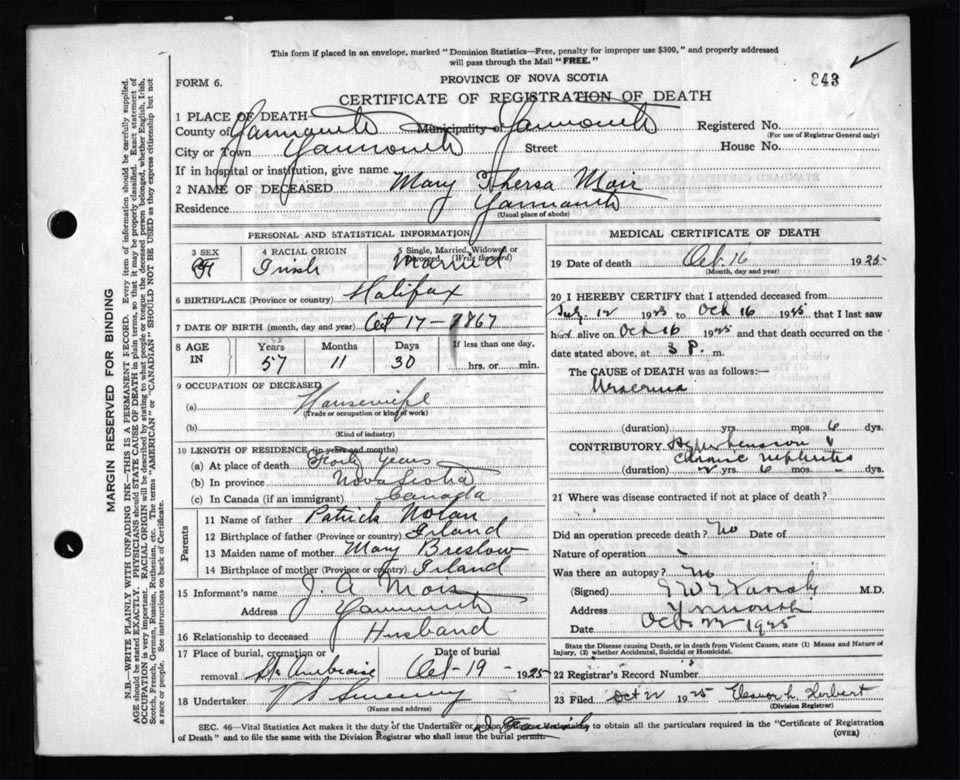 This form if placed in an envelope, marked "Dominion Statistics—Free, penalty for improper use $300," and properly addressed
will pass through the Mail "FREE."
FORM 6.
PROVINCE OF NOVA SCOTIA
843
CERTIFICATE OF REGISTRATION OF DEATH
1 PLACE OF DEATH
County of Yarmouth Municipality of Yarmouth Registered No.
(For use of Registrar General only)
City or Town Yarmouth Street House No.
If in hospital or institution, give name
2 NAME OF DECEASED Mary Thersa Moir
Residence Yarmouth
(Usual place of abode)
PERSONAL AND STATISTICAL INFORMATION
3 SEX F 4 RACIAL ORIGIN Irish 5 Single, Married, Widowed or Divorced (Write the word) Married
6 BIRTHPLACE (Province or country) Halifax
7 DATE OF BIRTH (month, day and year) Oct 17 — 1867
8 AGE IN Years 57 Months 11 Days 30 If less than one day, hrs. or min.
9 OCCUPATION OF DECEASED
(a) Housewife
(Trade or occupation or kind of work)
(b)
(Kind of industry)
10 LENGTH OF RESIDENCE (in years and months)
(a) At place of death Forty Years
(b) In province Nova Scotia
(c) In Canada (if an immigrant) Canada
Parents
11 Name of father Patrick Nolan
12 Birthplace of father (Province or country) Irland
13 Maiden name of mother Mary Breslow
14 Birthplace of mother (Province or country) Irland
15 Informant's name J. A. Moir
Address Yarmouth
16 Relationship to deceased Husband
17 Place of burial, cremation or removal St. Ambroise Date of burial Oct-19- 1925
18 Undertaker V S Sweeny
(Name and address)
MEDICAL CERTIFICATE OF DEATH
19 Date of death Oct. 16 1925
(Month, day and year)
20 I HEREBY CERTIFY that I attended deceased from
12 1923 to Oct 16 1925 that I last saw
her alive on Oct 16 1925 and that death occurred on the
date stated above, at 3 P. m.
The CAUSE OF DEATH was as follows:—
Uraemia
(duration) yrs. mos. 6 dys.
CONTRIBUTORY Hypertension &
chronic nephritis
(duration) 2 yrs. 6 mos. dys.
21 Where was disease contracted if not at place of death?
Did an operation precede death? No Date of
Nature of operation
Was there an autopsy? No
(Signed) M.D.
Address Yarmouth
Date Oct 22 1925
State the Disease causing Death, or in Death from Violent Causes, state (1) Means and Nature of
Injury, (2) whether Accidental, Suicidal or Homicidal.
22 Registrar's Record Number
23 Filed Oct 22 1925 Eleanor L. Herbert
(Division Registrar)
SEC. 46—Vital Statistics Act makes it the duty of the Undertaker or person to obtain all the particulars required in the "Certificate of Registration
of Death" and to file the same with the Division Registrar who shall issue the burial permit.
(OVER)
MARGIN RESERVED FOR BINDING
N.B.—WRITE PLAINLY WITH UNFADING INK—THIS IS A PERMANENT RECORD. Every item of information should be carefully supplied.
AGE should be stated EXACTLY. PHYSICIANS should STATE CAUSE OF DEATH in plain terms, so that it may be properly classified. Exact statement of
OCCUPATION is very important. RACIAL ORIGIN will be described by stating to what people or tongue the deceased person belonged, whether English, Irish,
Scotch, French, German, Russian, Ruthenian, etc. The terms "AMERICAN" or "CANADIAN" SHOULD NOT BE USED as they express citizenship but not
a race or people. See instructions on back of Certificate.